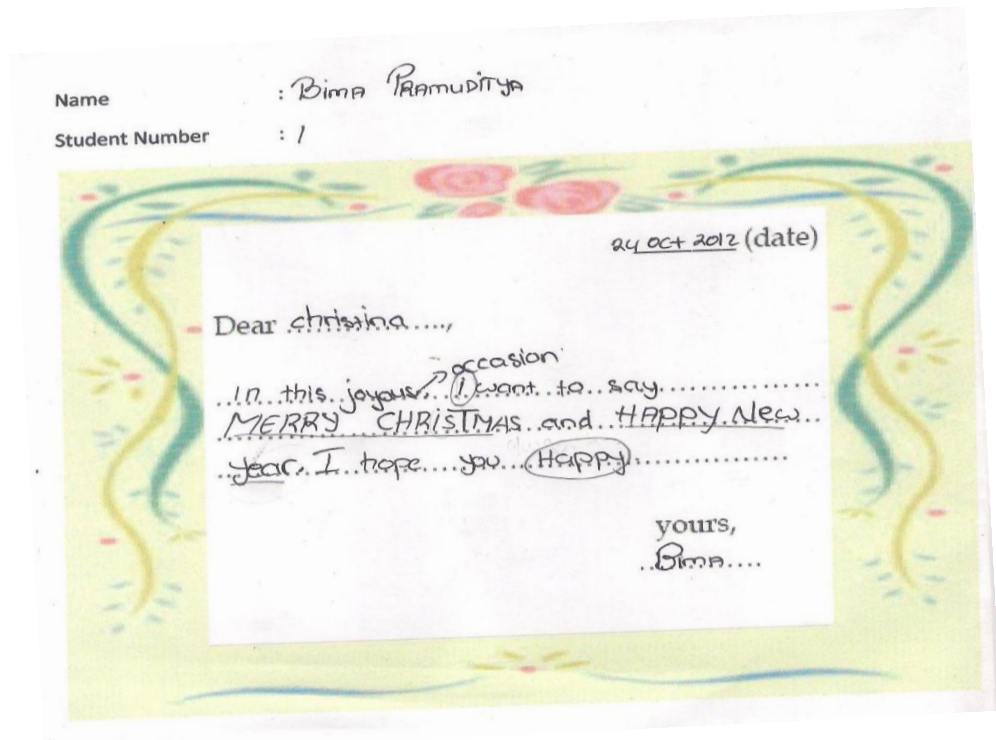 Name : Bima PRAMUDITYA
Student Number : 1
24 Oct 2012 (date)
Dear christina ....,
occasion
In this joyous, I want to say
MERRY CHRISTMAS and HAPPY New
year. I hope you Happy
yours,
Bima